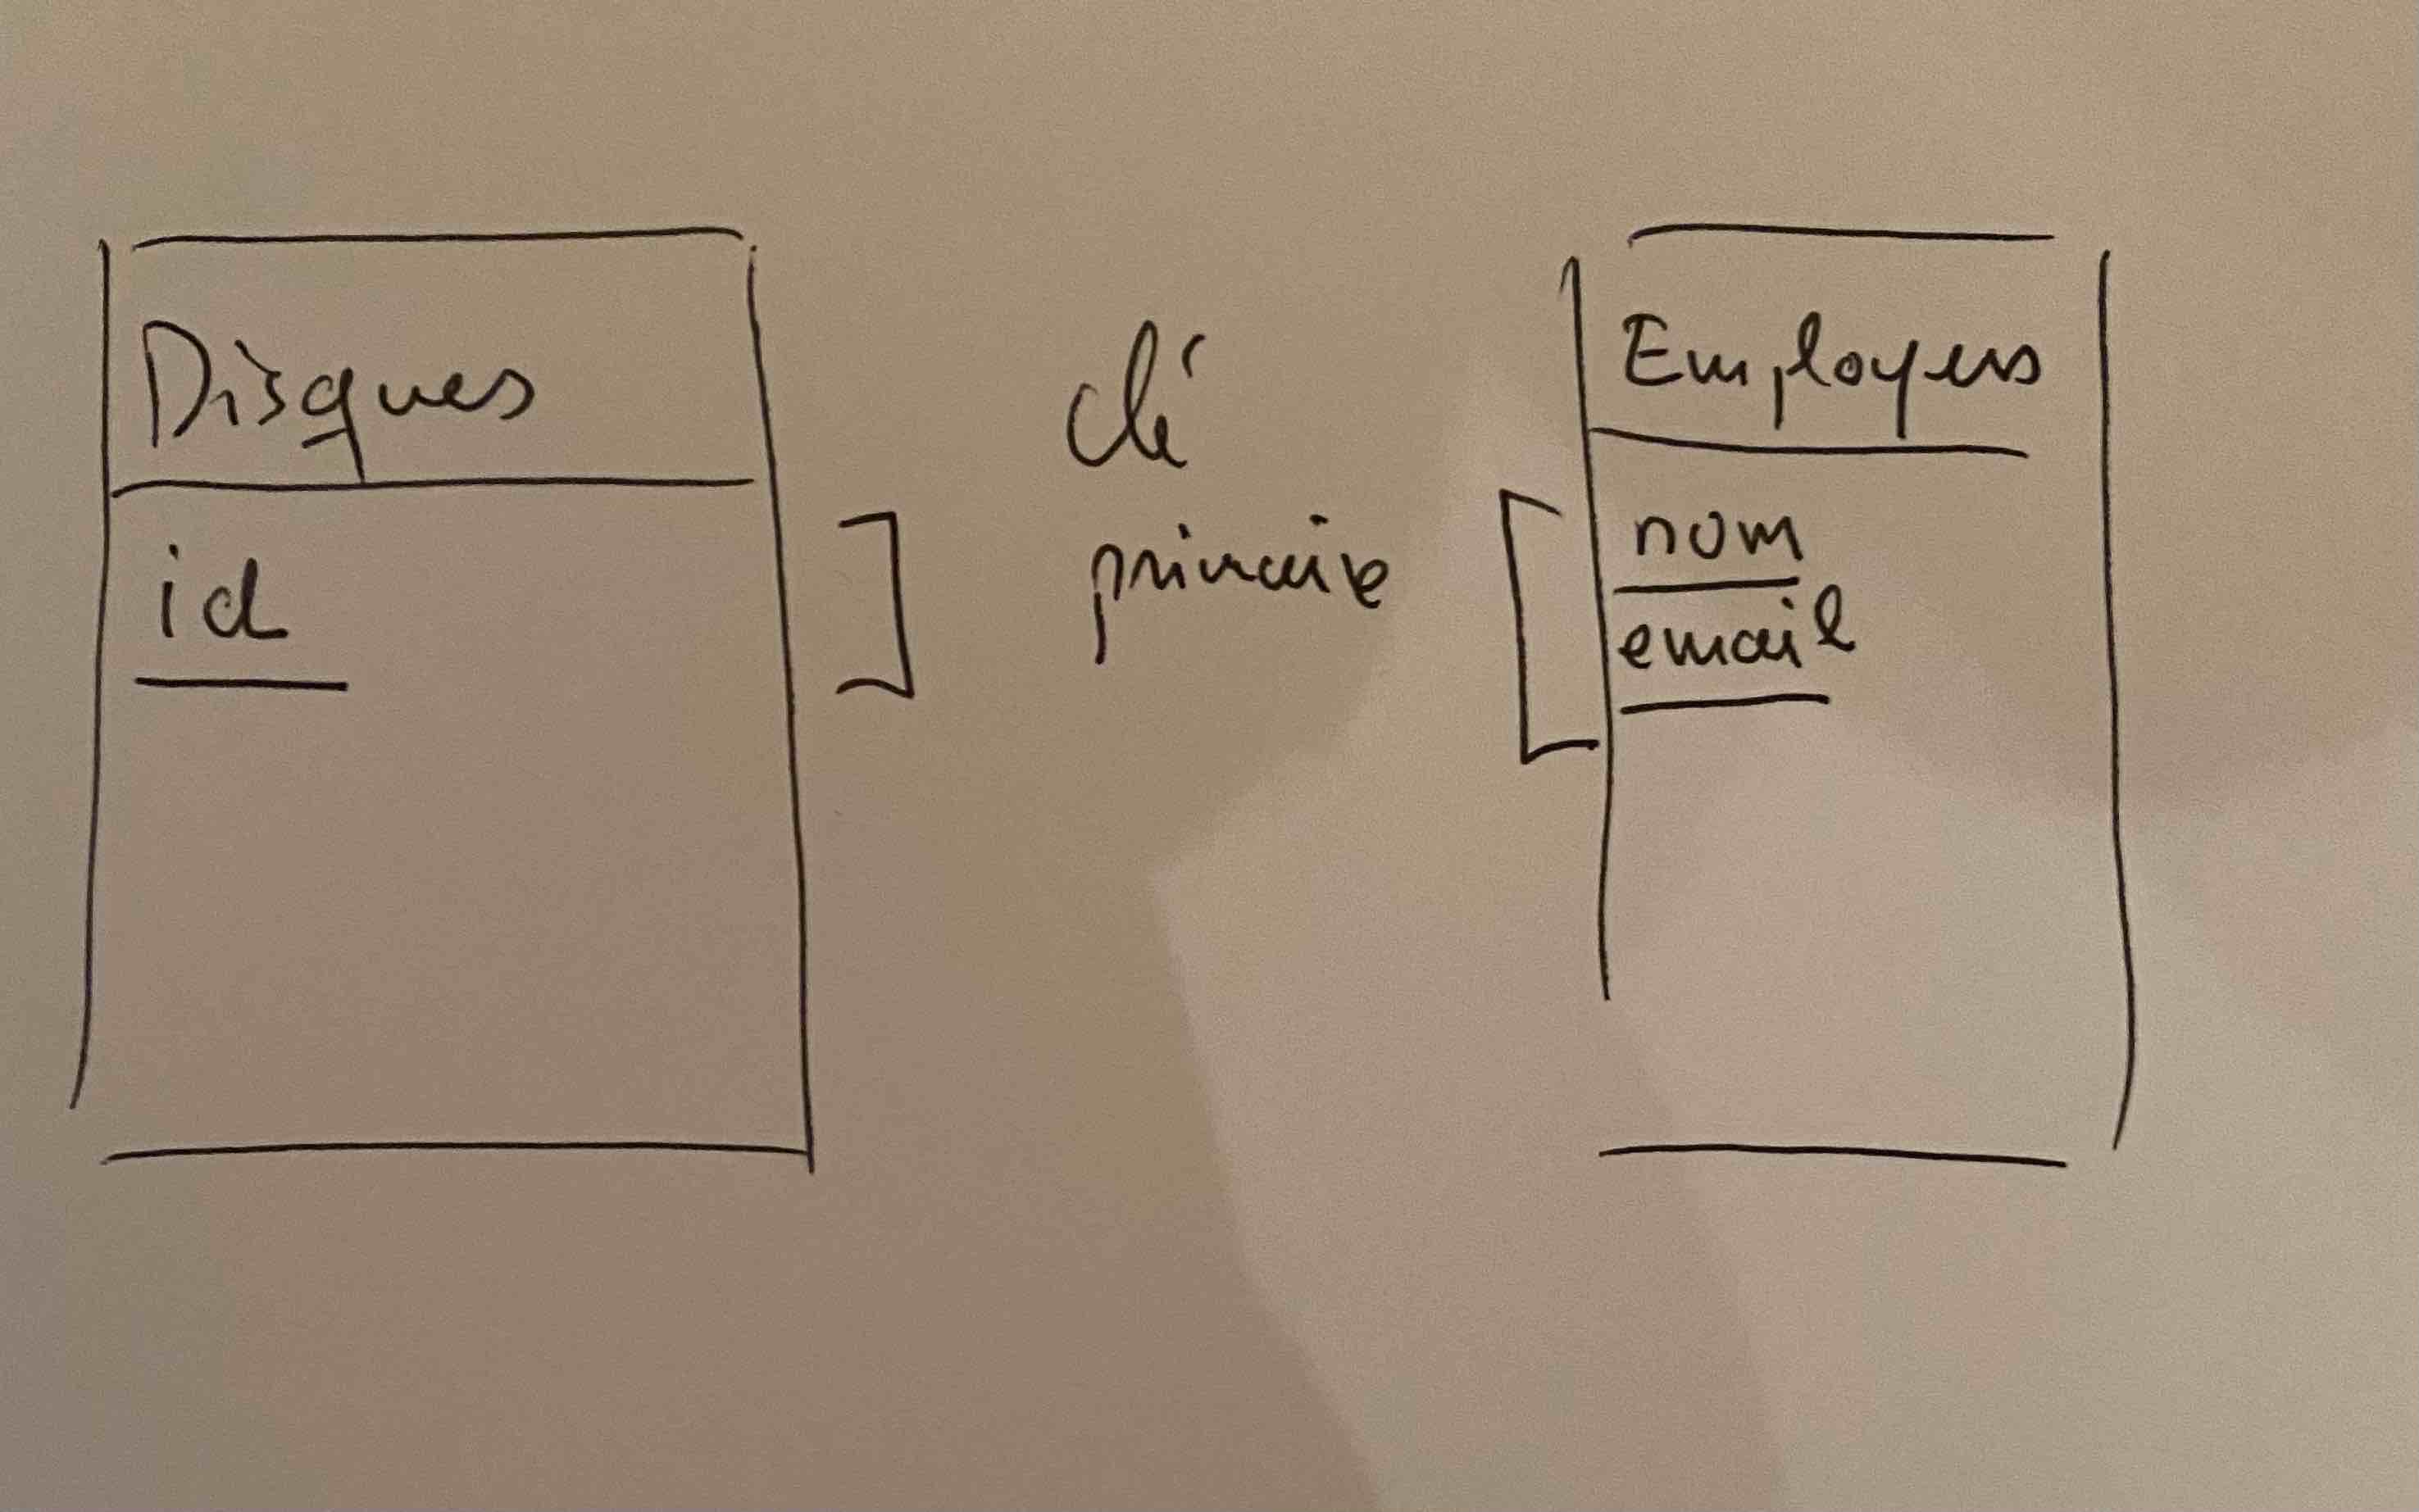 Disques
id
clé
primaire
Employers
nom
email